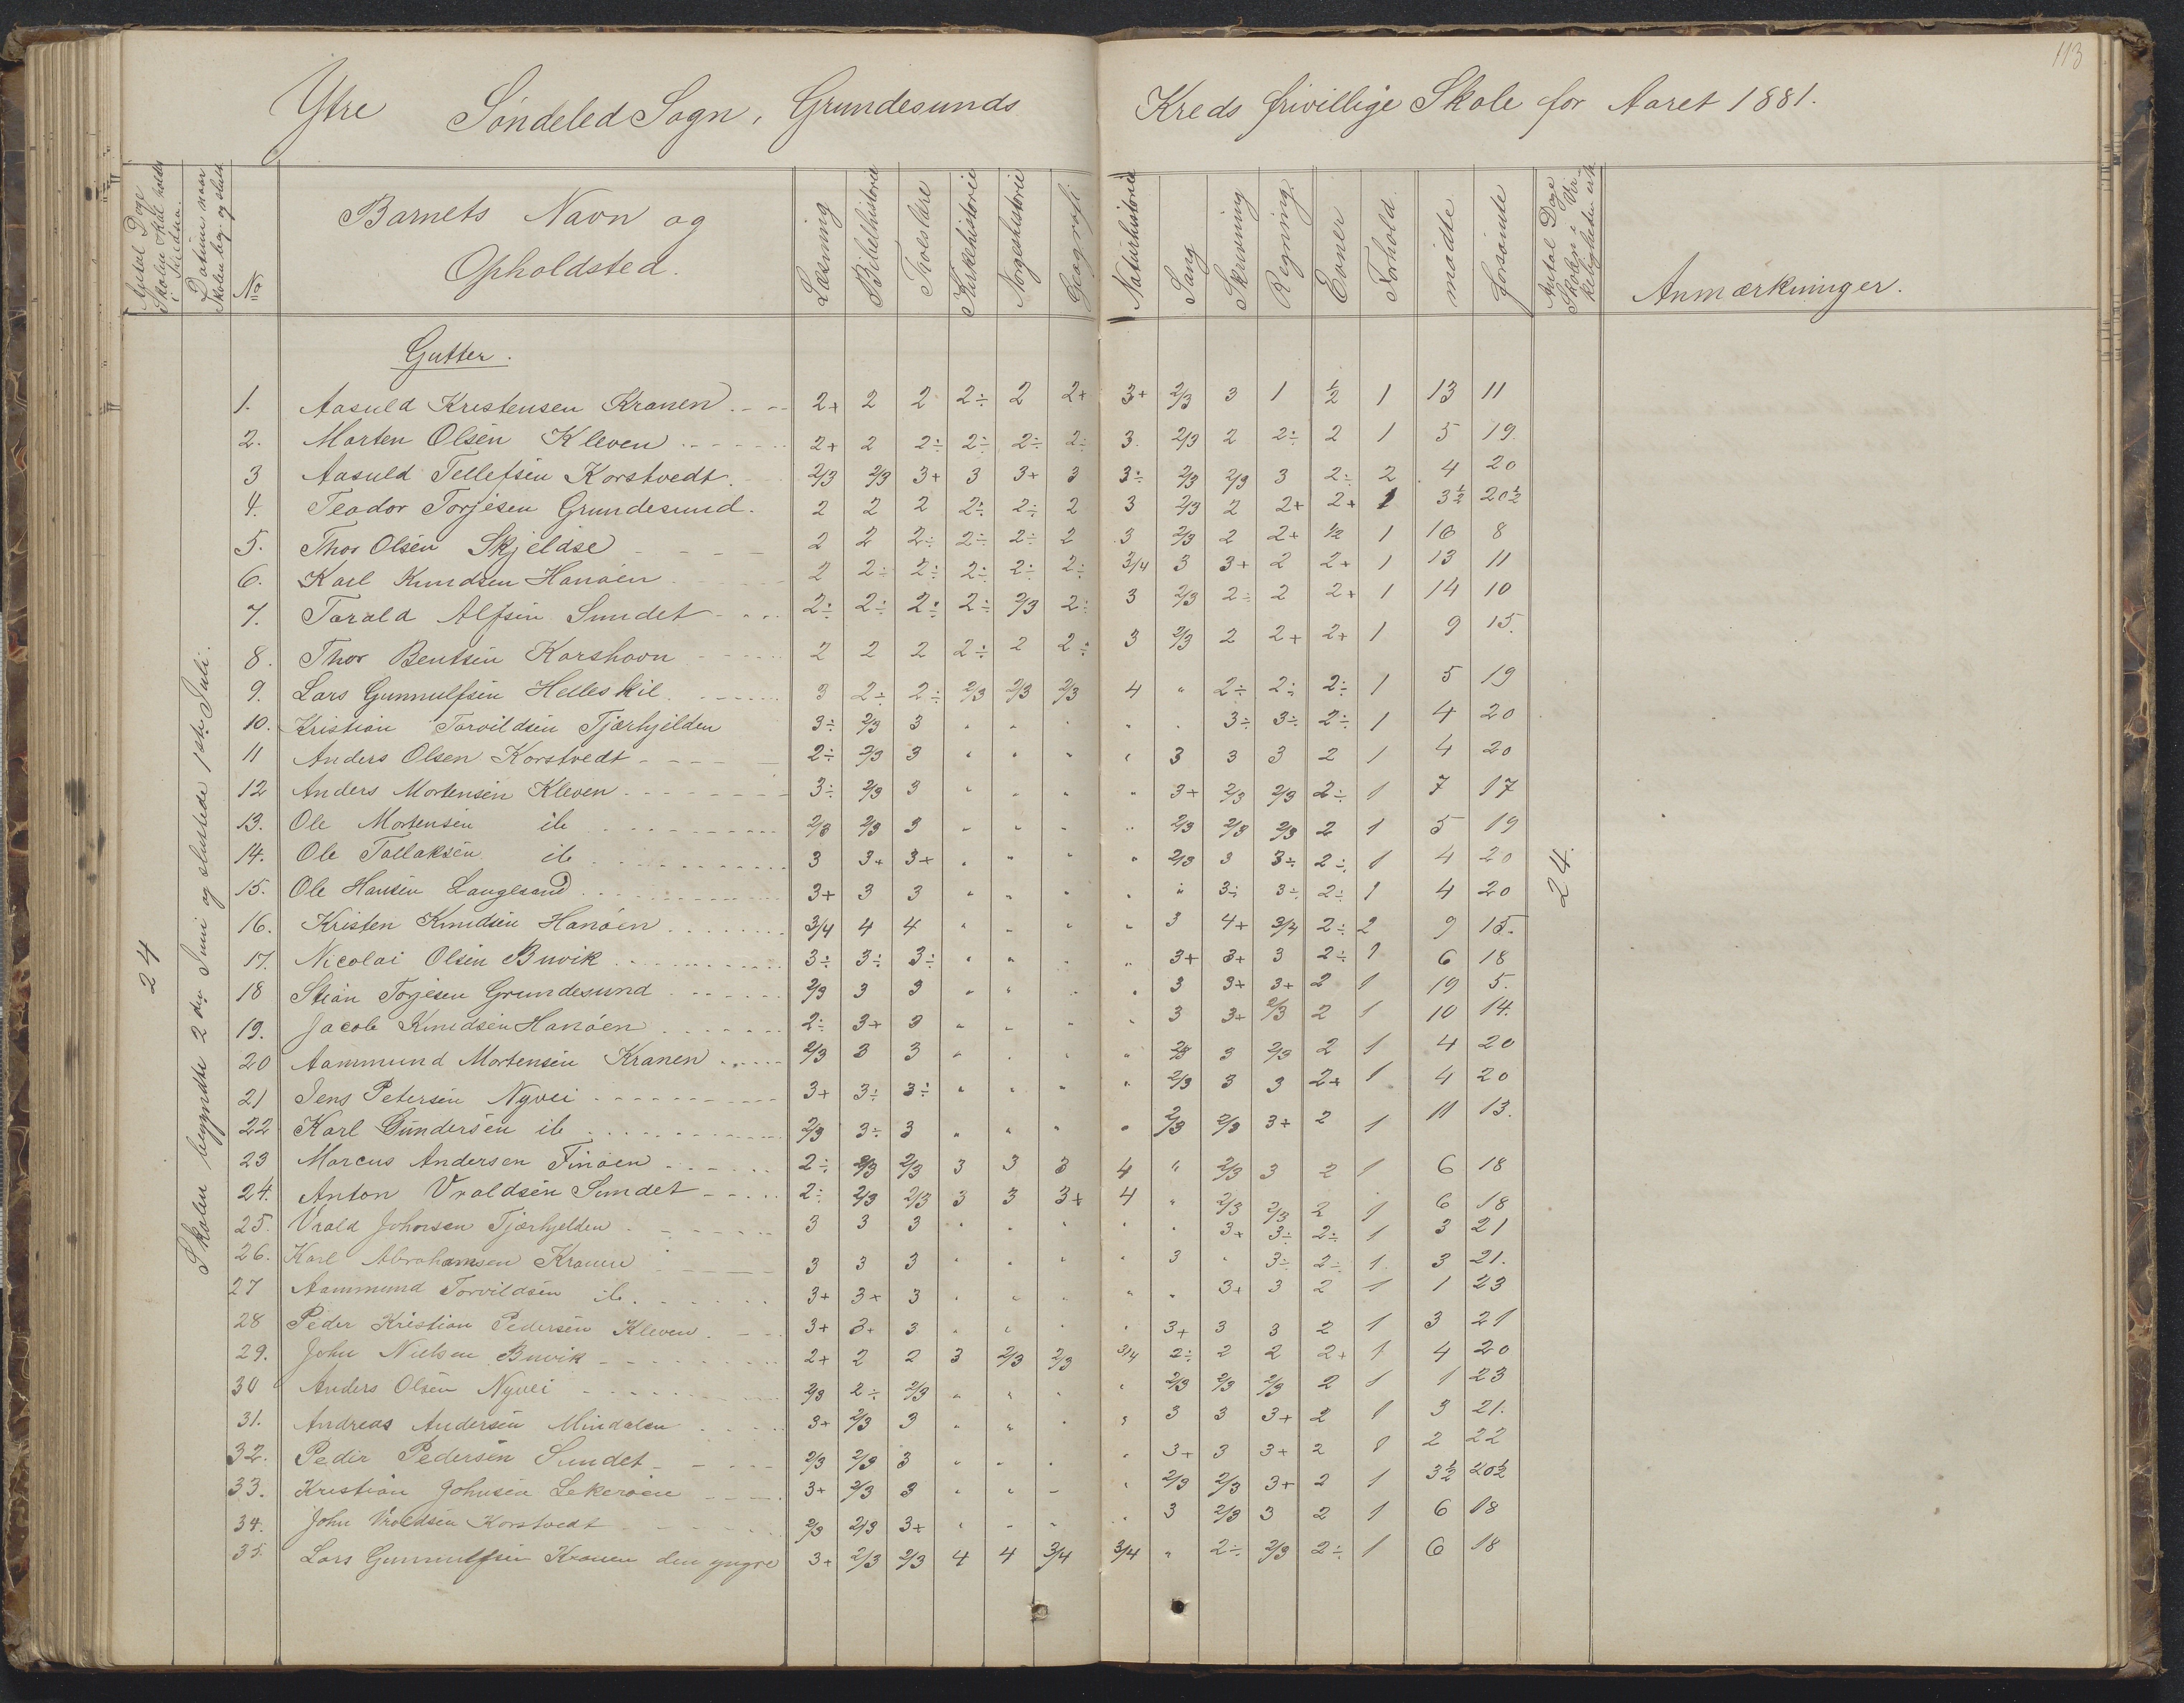 113
Ytre Søndeled Sogn, Grundesunds Kreds frivillige Skole for Aaret 1881.
Antal Dage Skolen skal holdes i Kredsen.
Datum naar Skolen beg. og slutt.
No
Barnets Navn og Opholdsted.
Læsning
Bibelhistorie
Troeslære
Kirkehistorie
Norgeshistorie
Geografi
Naturhistorie
Sang
Skrivning
Regning.
Evner
Forhold.
mødte
forsømte
Antal Dage Skolen i Virkeligheden
Anmærkninger.
24
Skolen begyndte 2den Juni og sluttede 1ste Juli.
24.
Gutter.
1. Aasuld Kristensen Kranen 2+ 2 2 2÷ 2 2+ 3+ 2/3 3 1 ½ 1 13 11
2. Morten Olsen Kleven 2+ 2 2÷ 2÷ 2÷ 2÷ 3. 2/3 2 2÷ 2 1 5 19.
3 Aasuld Tellefsen Korstvedt 2/3 2/3 3+ 3 3+ 3 3÷ 2/3 2/3 3 2÷ 2 4 20
4. Teodor Torjesen Grundesund. 2 2 2 2÷ 2÷ 2 3 2/3 2 2+ 2+ 1 3½ 20½
5. Thor Olsen Skjeldsø 2 2 2÷ 2÷ 2÷ 2 3 2/3 2 2+ ½ 1 16 8
6. Karl Knudsen Hanøen 2 2÷ 2÷ 2÷ 2÷ 2÷ 3/4 3 3+ 2 2+ 1 13 11
7. Torald Alfsen Sundet 2÷ 2÷ 2÷ 2÷ 2/3 2÷ 3 2/3 2÷ 2 2+ 1 14 10
8. Thor Bentsen Korshavn 2 2 2 2÷ 2 2÷ 3 2/3 2 2+ 2+ 1 9 15.
9. Lars Gunnulfsen Helleskil 3 2÷ 2÷ 2/3 2/3 2/3 4 " 2÷ 2÷ 2÷ 1 5 19
10. Kristian Torvildsen Tjærhjelden 3÷ 2/3 3 " " " " " 3÷ 3÷ 2÷ 1 4 20
11 Anders Olsen Korstvedt 2÷ 2/3 3 " " " " 3 3 3 2 1 4 20
12 Anders Mortensen Kleven 3÷ 2/3 3 " " " " 3+ 2/3 2/3 2÷ 1 7 17
13. Ole Mortensen ib 2/3 2/3 3 " " " " 2/3 2/3 2/3 2 1 5 19
14. Ole Tallaksen ib 3 3+ 3+ " " " " 2/3 3 3÷ 2÷ 1 4 20
15. Ole Hansen Langesand 3+ 3 3 " " " " " 3÷ 3÷ 2÷ 1 4 20
16. Kristen Knudsen Hanøen 3/4 4 4 " " " " 3 4+ 3/4 2÷ 2 9 15.
17. Nicolai Olsen Buvik 3÷ 3÷ 3÷ " " " " 3+ 3+ 3 2÷ 1 6 18
18 Stian Torjesen Grundesund 2/3 3 3 " " " " 3 3+ 3+ 2 1 19 5.
19. Jacob Knudsen Hanøen 2÷ 3+ 3 " " " " 3 3+ 2/3 2 1 10 14.
20 Aammund Mortensen Kranen 2/3 3 3 " " " " 2/3 3 2/3 2 1 4 20
21 Jens Petersen Nyvei 3+ 3÷ 3÷ " " " " 2/3 3 3 2+ 1 4 20
22 Karl Gundersen ib 2/3 3÷ 3 " " " " 2/3 2/3 3+ 2 1 11 13.
23 Marcus Andersen Finøen 2÷ 2/3 2/3 3 3 3 4 " 2/3 3 2 1 6 18
24. Anton Vraldsen Sundet 2÷ 2/3 2/3 3 3 3+ 4 " 2/3 2/3 2 1 6 18
25. Vrald Johnsen Tjærhjelden 3 3 3 " " " " " 3+ 3÷ 2÷ 1 3 21
26. Karl Abrahamsen Kranen 3 3 3 " " " " 3 " 3÷ 2÷ 1. 3 21.
27 Aammund Torvildsen ib. 3+ 3+ 3 " " " " " 3+ 3 2 1 1 23
28 Peder Kristian Pedersen Kleven 3+ 3+ 3 " " " " 3+ 3 3 2 1 3 21
29. John Nielsen Buvik 2+ 2 2 3 2/3 2/3 3/4 2÷ 2 2 2+ 1 4 20
30 Anders Olsen Nyvei 2/3 2÷ 2/3 " " " " 2/3 2/3 2/3 2 1 1 23
31. Andreas Andersen Mindalen 3+ 2/3 3 " " " " 3 3 3+ 2 1 3 21.
32. Peder Pedersen Sundet 2/3 2/3 3 " " " " 3+ 3 3+ 2 1 2 22
33. Kristian Johnsen 3+ 2/3 3 " " " " 2/3 2/3 3+ 2 1 3½ 20½
34. John Vraldsen Korstvedt 2/3 2/3 3+ " " " " 3 2/3 3 2 1 6 18
35. Lars Gunnulfsen Kranen den yngre 3+ 2/3 2/3 4 4 3/4 3/4 " 2÷ 2/3 2÷ 1 6 18